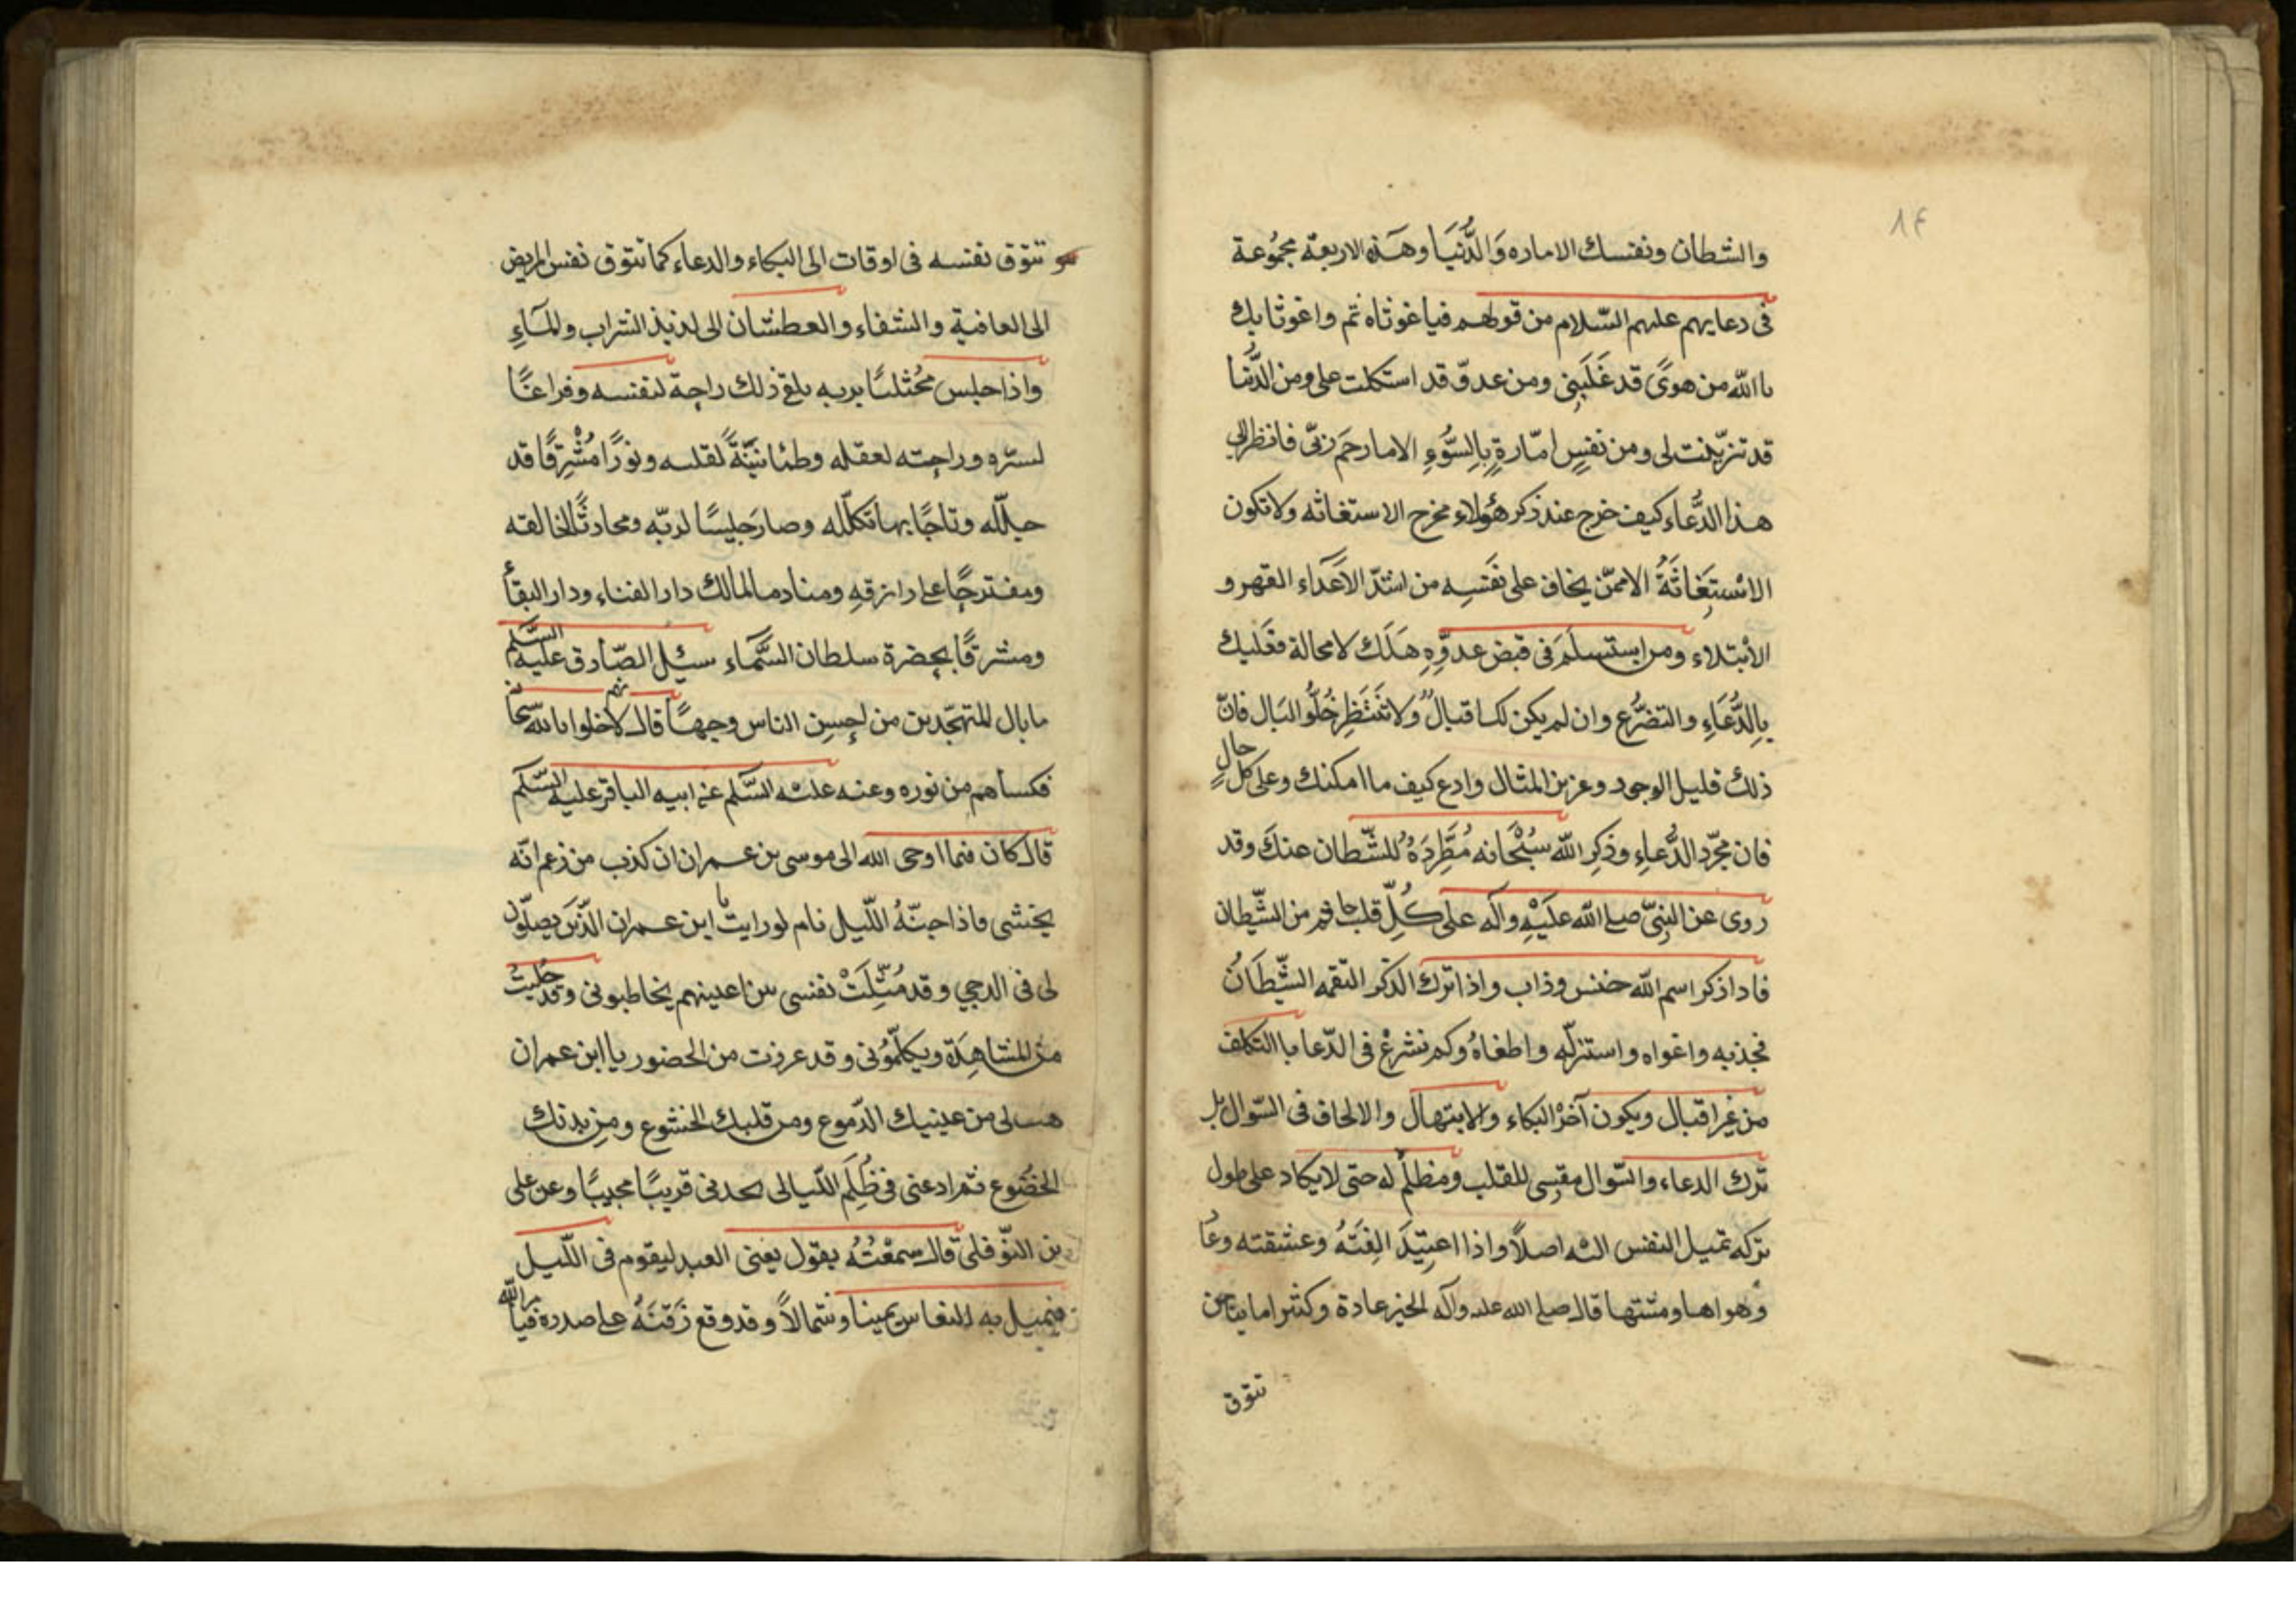 ٨٤
والشطان ونفسك الاماره وَالدُّنيَا وهَذه الاربعة مجمُوعة
فى دعايهم عليهم السّلام من قولهم فياغوثاه ثم واغوثا بك
ياالله من هوىً قد غَلَبَنِى ومن عدوّ قد استكلت على ومن الدُّنيا
قد تزيّنت لى ومن نفسٍ امّارةٍ بِالسُّوءِ الا مارحَم ربّى فانظر الى
هذا الدُّعاء كيف خرج عند ذكر هؤلاء مخرج الاستغاثه ولا تكون
الاستِغَاثَةُ الا ممّن يخاف على نَفسِه من اشدّ الأعداء القهر و
الأبتلاء ومن استسلَمَ فى قبض عدوِّهِ هَلَك لامحالة فعَليك
بِالدُّعَاءِ والتضرُّع وان لم يكن لك اقبالٌ ولا تنتَظِر خُلُوَّ البَال فانّ
ذلك قليل الوجود وعزيز المثال وادع كيف ما امكنك وعلى كل حالٍ
فان مجرّد الدُّعاءِ وذِكرِ الله سُبْحَانه مُطَرِدَةٌ للشّطان عنكَ وقد
روى عن النبىّ صلى الله عَلَيْهِ وآله على كُلِّ قلب جاثم من الشّيطان
فاذا ذكر اسم الله خنس وذاب واذا ترك الذكر التقمه الشّيطَانُ
فجذبه واغواه واستزلّه واطغاهُ وكم نشرعُ فى الدّعا باالتكلف
من غير اقبال ويكون آخرُ البكاء والابتهال والالحاف فى السّوال بل
ترك الدعاء والسّوال مقسِى للقلب ومظلم له حتى لا يكاد على طول
تركه تميل النفس اليه اصلاً واذا اعتِيدَ الِفَتْهُ وعشقته وعا
وهواها ومشتهاها قال صلى الله عليه وآله الخير عادة وكثيرا ما يتاحن
تتوق
تتوق نفسه فى اوقات الى البكاء والدعاء كما تتوق نفس المريض
الى العافية والشفاء والعطشان الى لذيذ الشراب والمآءِ
واذا جلس مختليًا بربه بلغ ذلك راحة لنفسه وفراغًا
لسرّه وراحته لعقله وطمانينَةً لقلبه ونورًا مُشْرِقًا قد
جلّله وتاجًا بها تكلّله وصار جليسًا لربّه ومحادثًا لخالقه
ومقترحًا على رازقهِ ومنادما لمالك دار الفناء ودار البقأ
ومشرقًا بحضرة سلطان السَّمَاء سئِل الصّادق عليه السّلم
ما بال المتهجّدين من احسن الناس وجهًا قال لانهم خلوا بالله سبحا
فكساهم من نوره وعنه عليه السَّلم عن ابيه الباقر عليه السّلم
قال كان فيما اوحى الله الى موسى بن عمران ان كذب من زعم انّه
يخشى فاذا جنّهُ اللّيل نام لو رايت يا ابن عمران الذّين يصلّون
لى فى الدجى وقد مُثِّلَتْ نفسى بين اعينهم يخاطبونى وقد جليتُ
من المشاهِدَة ويكلّمُونى وقد عرزت من الحضور يا ابن عمران
هب لى من عينيك الدّموع ومن قلبك الخشوع ومن بدنك
الخضُوع ثم ادعنى فى ظُلَمِ اللّيالى تجدنى قريبًا مجيبًا وعن على
بن النوّفلى قال سمعْتُهُ يقول يعنى العبد ليقوم فى اللّيل
فيميل به النعاس يمينا وشمالاً وقد وقع ذَقنَهُ على صدره فيأمر الله